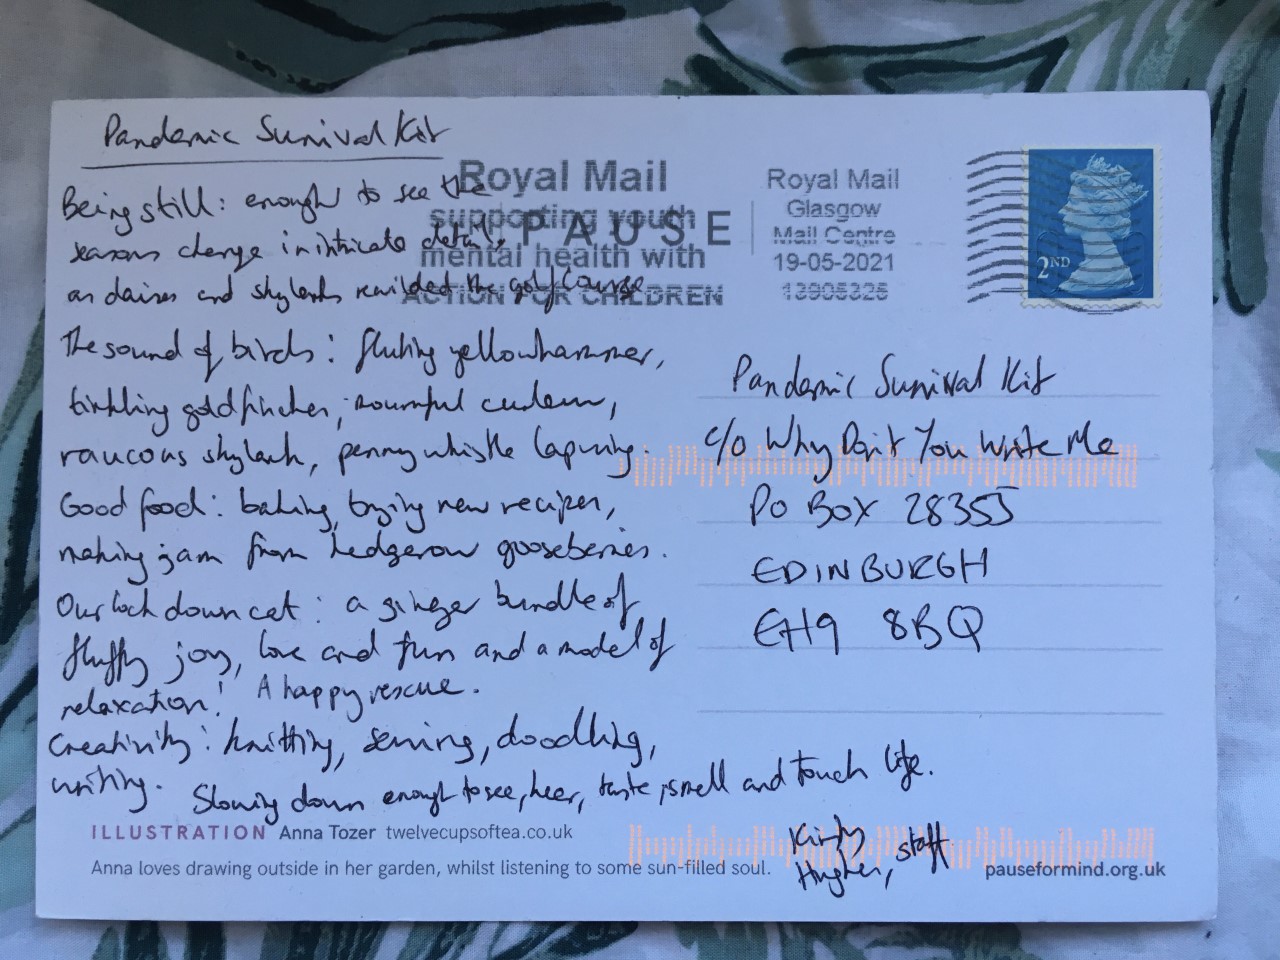 Pandemic Survival Kit
Being still: enough to see the
seasons change in intricate detail,
as daisies and skylarks rewilded the golf course
The sound of birds: fluting yellowhammer,
tinkling goldfinches, mournful curlew,
raucous skylark, penny whistle lapwing.
Good food: baking, trying new recipes,
making jam from hedgerow gooseberries.
Our lockdown cat: a ginger bundle of
fluffy joy, love and fun and a model of
relaxation! A happy rescue.
Creativity: knitting, sewing, doodling,
writing. Slowing down enough to see, hear, taste, smell and touch life.
Kirsty
Hughes, staff
ILLUSTRATION Anna Tozer twelvecupsoftea.co.uk
Anna loves drawing outside in her garden, whilst listening to some sun-filled soul.
pauseformind.org.uk
PAUSE
Royal Mail
supporting youth
mental health with
ACTION FOR CHILDREN
Royal Mail
Glasgow
Mail Centre
19-05-2021
13905325
2ND
Pandemic Survival Kit
c/o Why Don't You Write Me
PO Box 28355
EDINBURGH
EH9 8BQ